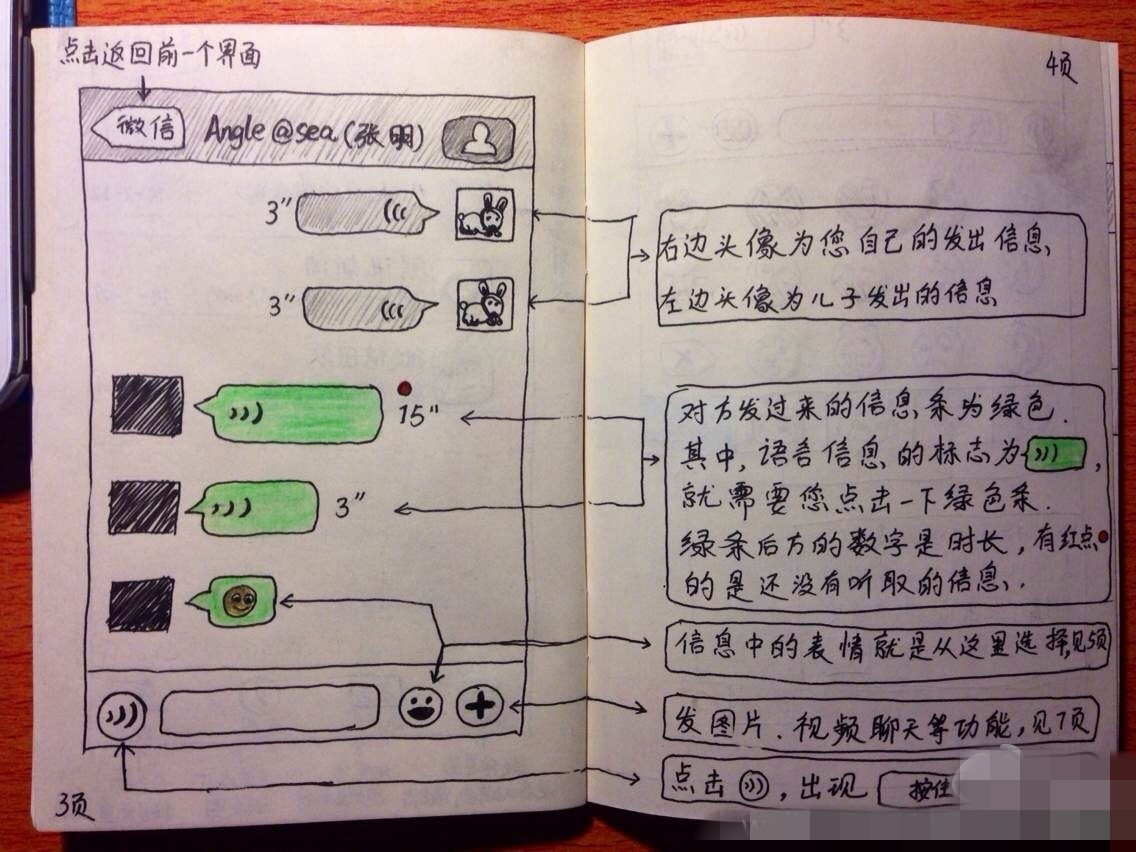 点击返回前一个界面
微信 Angle@sea(张明)
3"
3"
15"
3"
3页
4页
右边头像为您自己的发出信息,
左边头像为儿子发出的信息
对方发过来的信息条为绿色.
其中,语音信息的标志为 ,
就需要您点击一下绿色条.
绿条后方的数字是时长,有红点
的是还没有听取的信息.
信息中的表情就是从这里选择,见5页
发图片.视频聊天等功能,见7页
点击 ,出现 按住